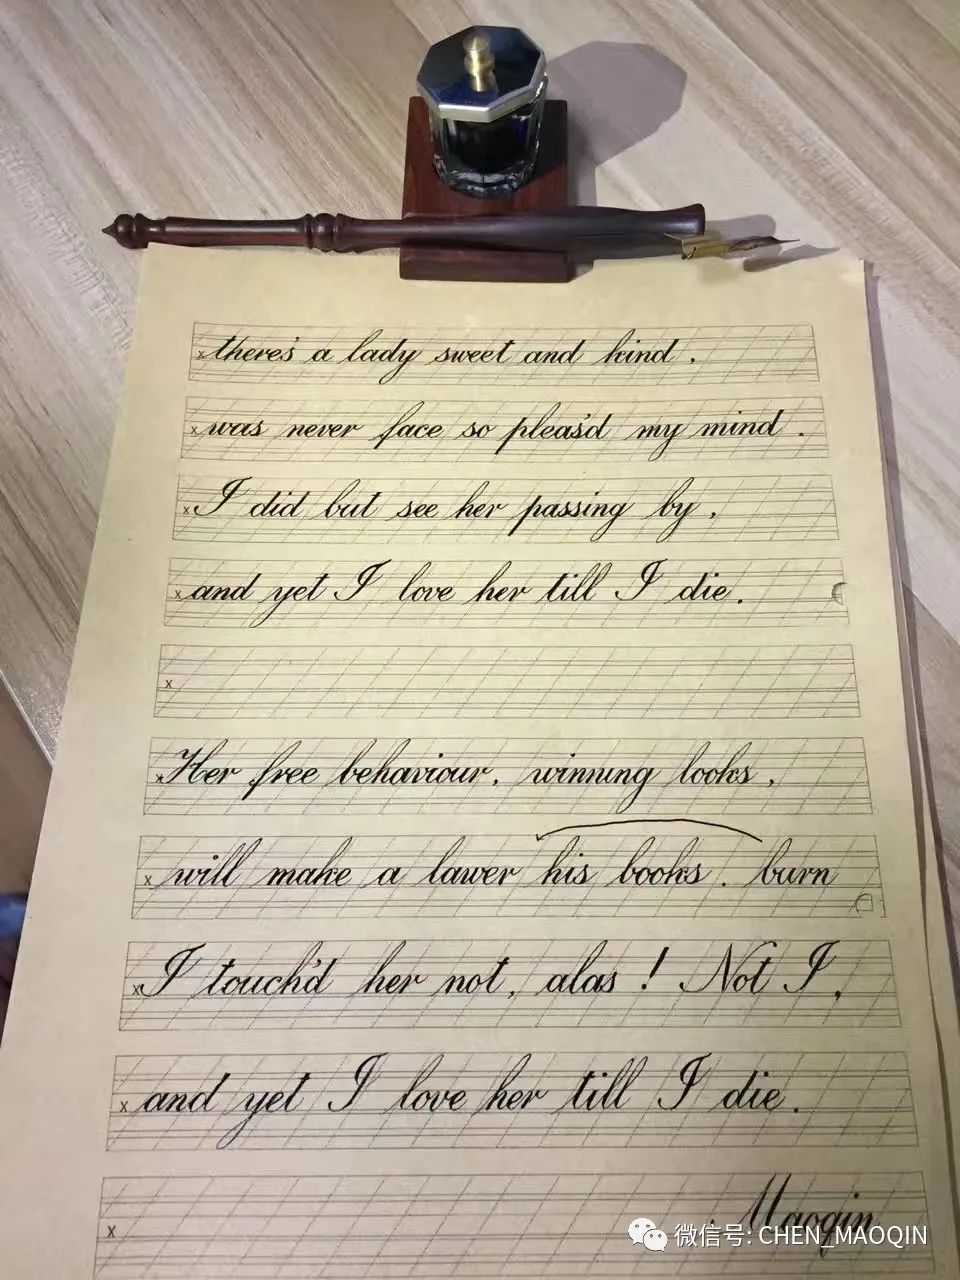 there's a lady sweet and kind,
was never face so pleas'd my mind.
I did but see her passing by,
and yet I love her till I die.
Her free behaviour, winning looks,
will make a lawer his books. burn
I touch'd her not, alas! Not I,
and yet I love her till I die.
Maoqin
微信号: CHEN_MAOQIN